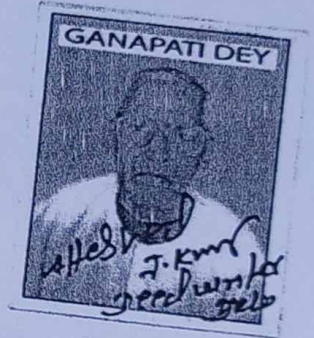 GANAPATI DEY
Attested
J. Kumar
Deed writer